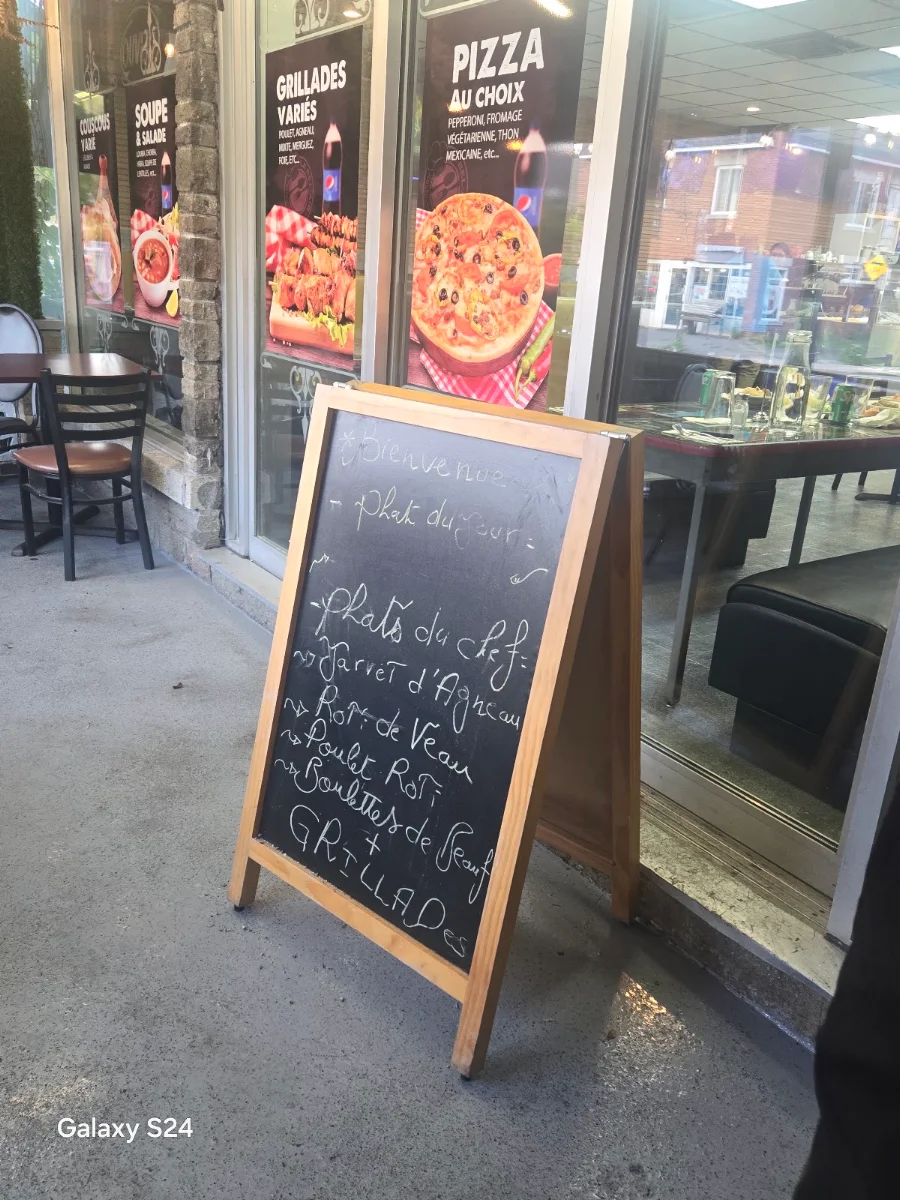 COUSCOUS
VARIÉ
SOUPE
& SALADE
LENTILLES, etc..
GRILLADES
VARIÉS
POULET, AGNEAU,
MIXTE, MERGUEZ,
FOIE, ETC...
PIZZA
AU CHOIX
PEPPERONI, FROMAGE
VÉGÉTARIENNE, THON
MEXICAINE, etc...
* Bienvenue
- Phat du Jour -
- Phats du chef -
Jarret d'Agneau
Roti de Veau
Poulet Roti
Boulettes de Beauf
+
GRILLADes
Galaxy S24